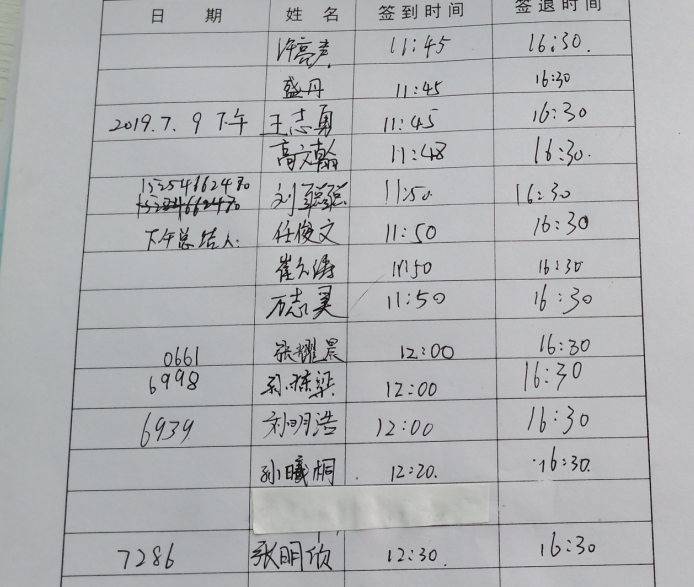 日 期 姓 名 签到时间 签退时间
许亮亮 11:45 16:30.
盛丹 11:45 16:30
2019.7.9 下午 王志勇 11:45 16:30
高文翰 11:48 16:30.
15254662470 刘聪聪 11:50 16:30
下午总结人: 任俊文 11:50 16:30
崔久涛 11:50 16:30
万志昊 11:50 16:30
0661 张耀晨 12:00 16:30
6998 孙栋梁 12:00 16:30
6939 刘明浩 12:00 16:30
孙曦桐. 12:20. 16:30.
7286 张明欣 12:30. 16:30